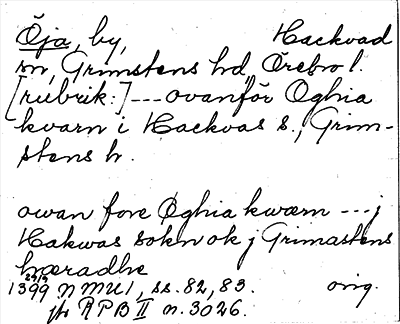 Öja, by, Hackvad
sn, Grimstens hd, Örebro l.
[rubrik:] --- ovanför Øghia
kvarn i Hackvas s., Grim-
stens h.
owan fore Øghia kwærn --- j
Hakwas sokn ok j Grimastens
hæradhe
1399 29/9 NMU 1, ss. 82, 83. orig.
jfr RPB II n. 3026.